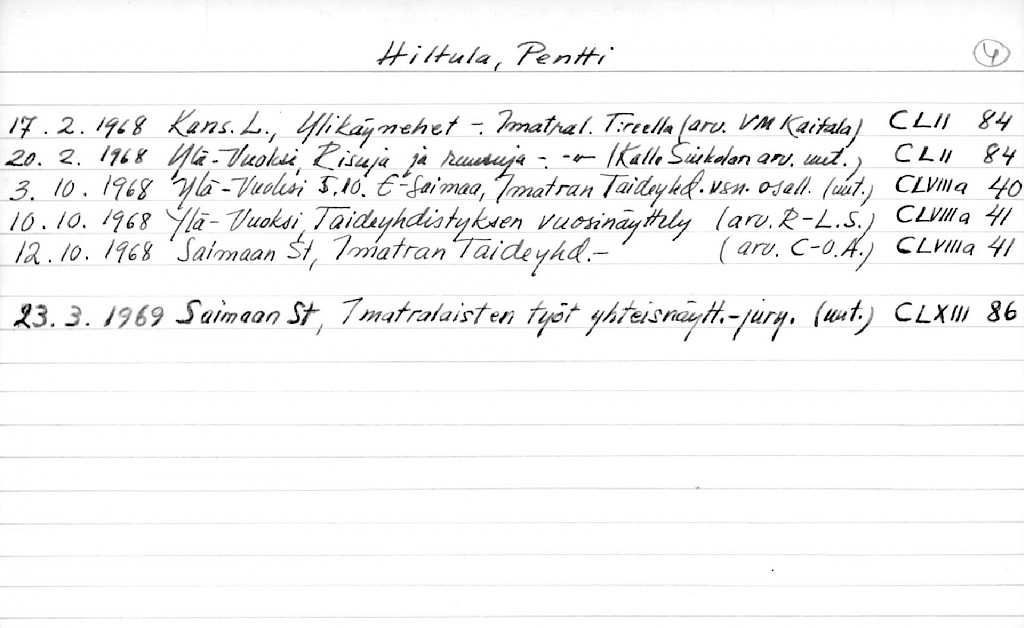 Hiltula, Pentti 4
17. 2. 1968 Kans. L., Ylikäynehet -. Imatral. T:reella (arv. VM Kaitala) CLII 84
20. 2. 1968 Ylä-Vuoksi, Risuja ja ruusuja -. -"- (Kalle arv. uut.) CLII 84
3. 10. 1968 Ylä-Vuoksi 5.10. E-Saimaa, Imatran Taideyhd. vsn. osall. (uut.) CLVIIIa 40
10. 10. 1968 Ylä-Vuoksi, Taideyhdistyksen vuosinäyttely (arv. R-L.S.) CLVIIIa 41
12. 10. 1968 Saimaan St, Imatran Taideyhd.- (arv. C-O.A.) CLVIIIa 41
23. 3. 1969 Saimaan St, Imatralaisten työt yhteisnäytt.-jury. (uut.) CLXIII 86